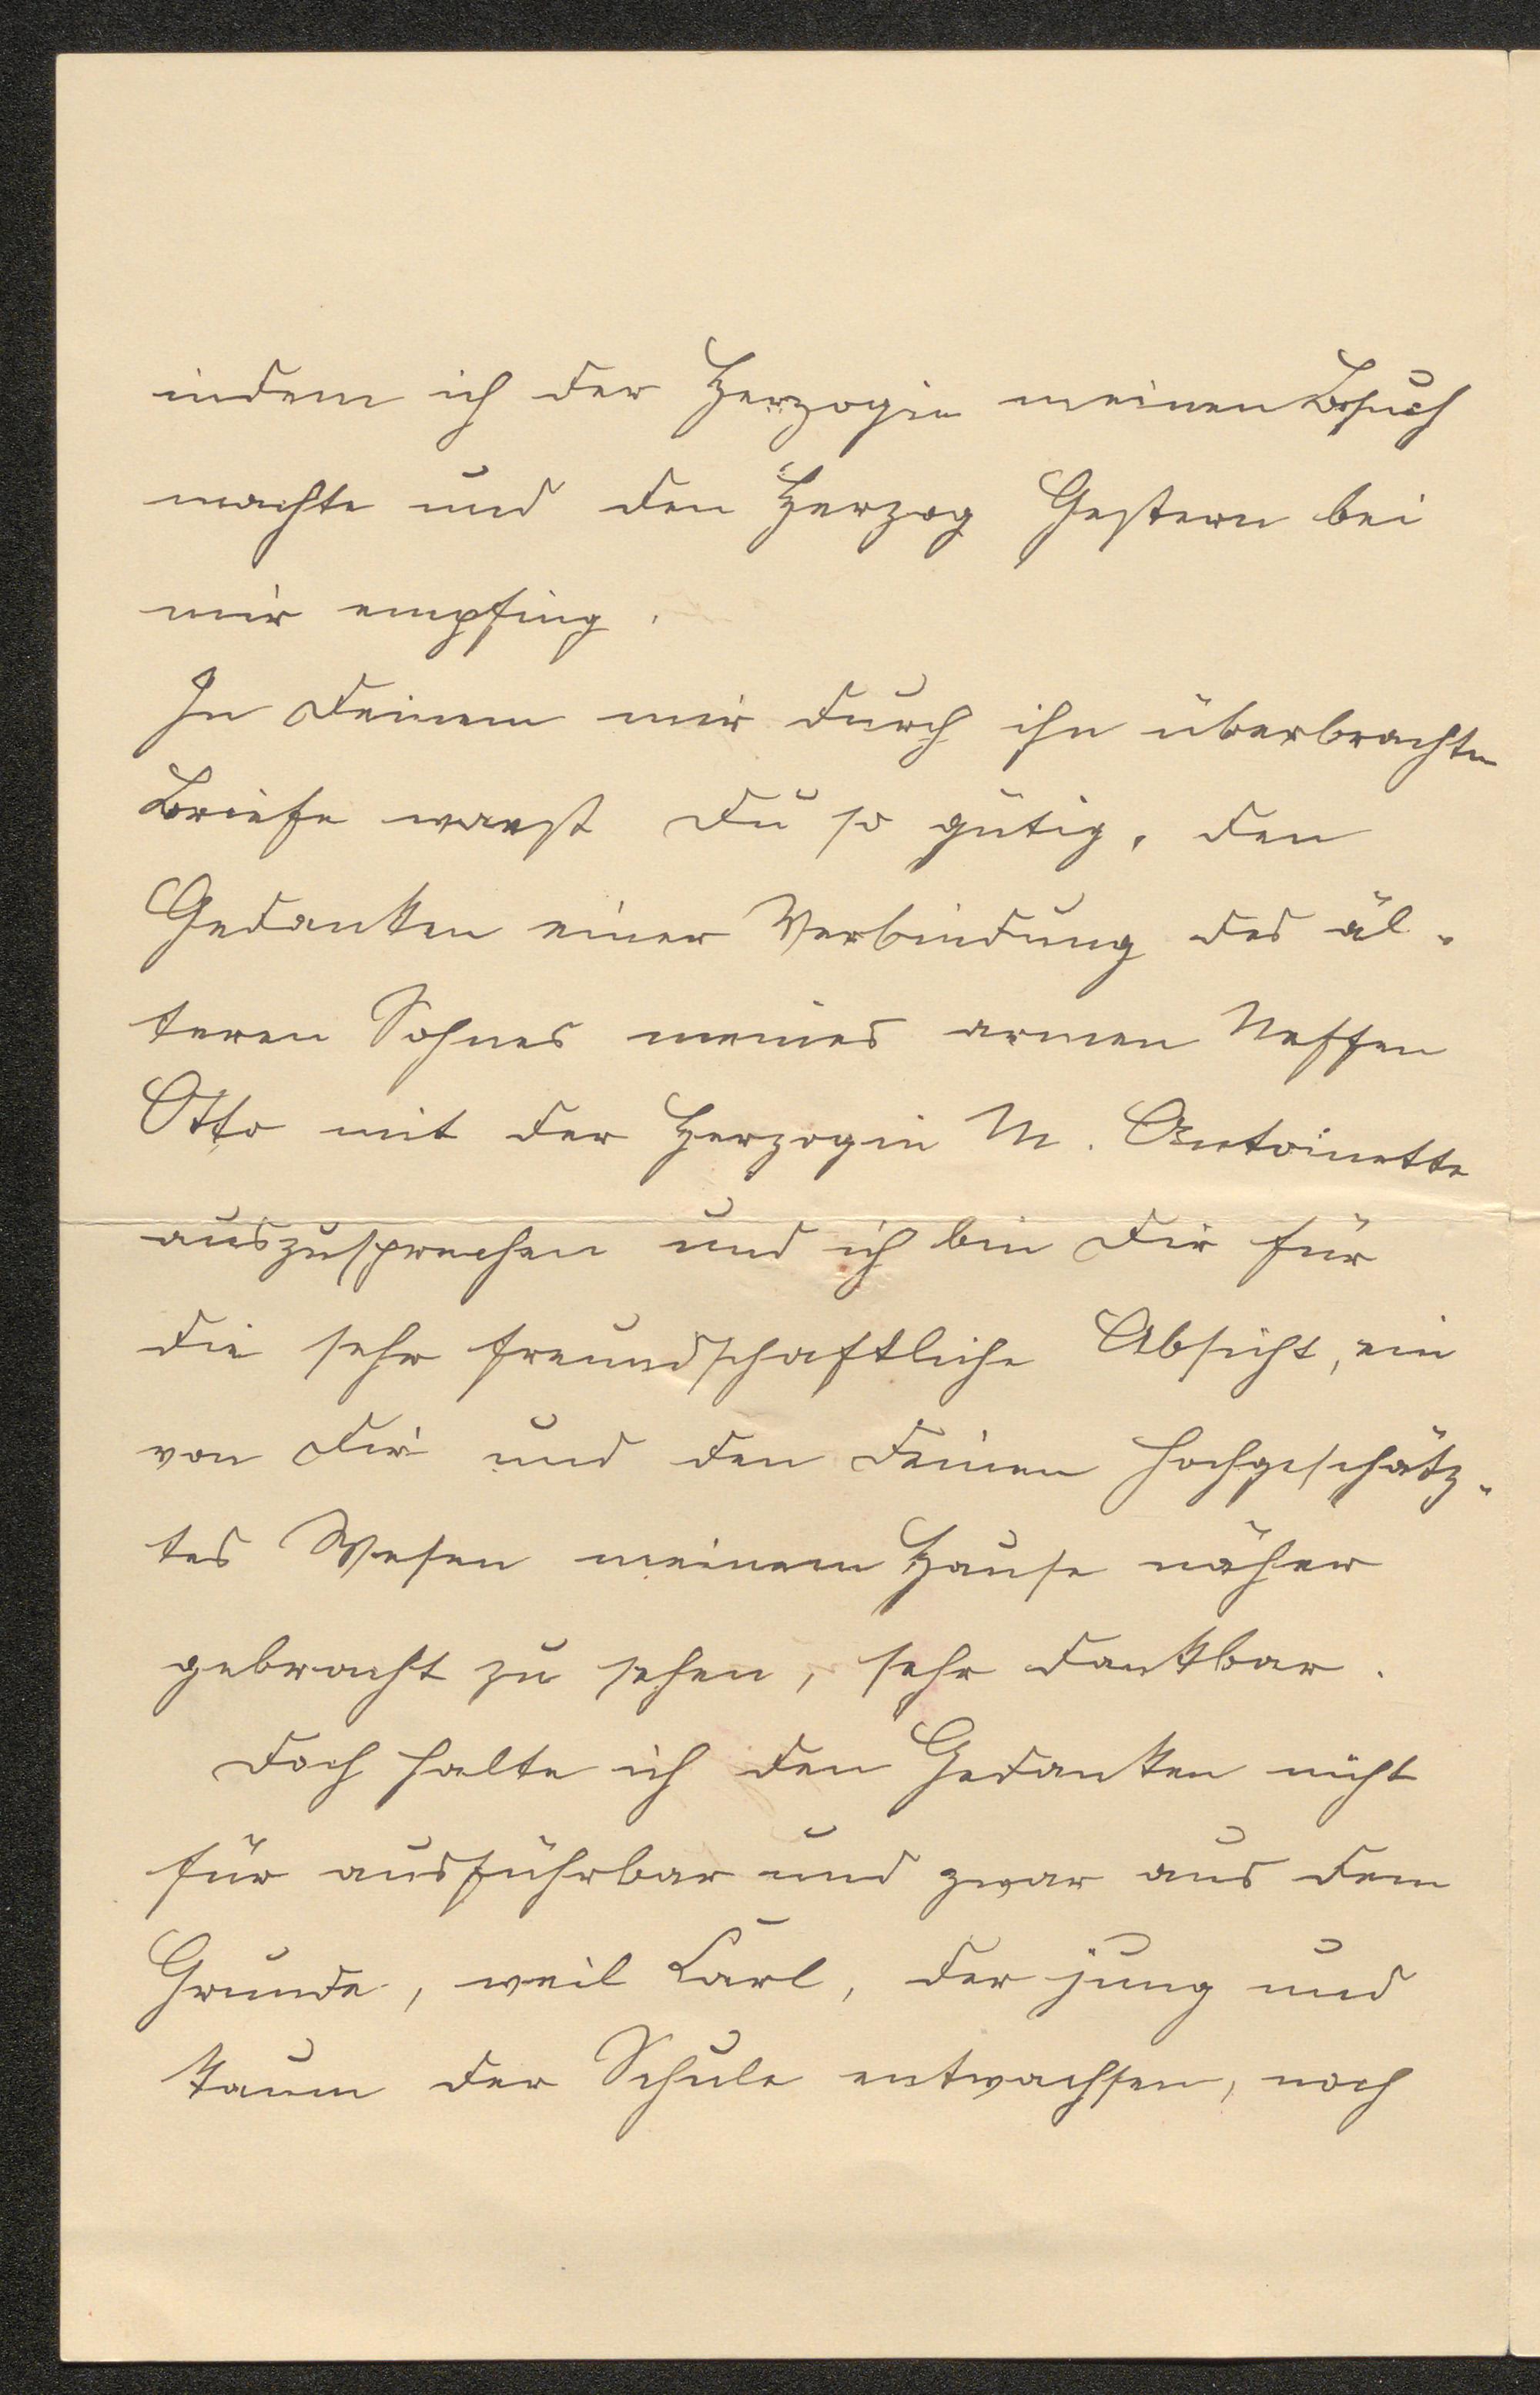 indem ich der Herzogin meinen Besuch
machte und den Herzog Gestern bei
mir empfing.
In Deinem mir durch ihn überbrachten
Briefe warst Du so gütig, den
Gedanken einer Verbindung des äl-
teren Sohnes meines armen Neffen
Otto mit der Herzogin M. Antoinette
auszusprechen und ich bin Dir für
die sehr freundschaftliche Absicht, ein
von Dir und den Deinen hochgeschätz-
tes Wesen meinem Hause näher
gebracht zu sehen, sehr dankbar.
Doch halte ich den Gedanken nicht
für ausführbar und zwar aus dem
Grunde, weil Carl, der jung und
kaum der Schule entwachsen, noch